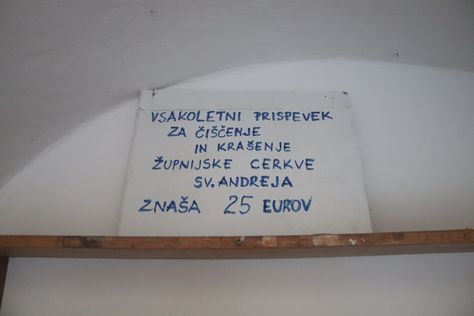 VSAKOLETNI PRISPEVEK
ZA ČIŠČENJE
IN KRAŠENJE
ŽUPNIJSKE CERKVE
SV. ANDREJA
ZNAŠA 25 EUROV